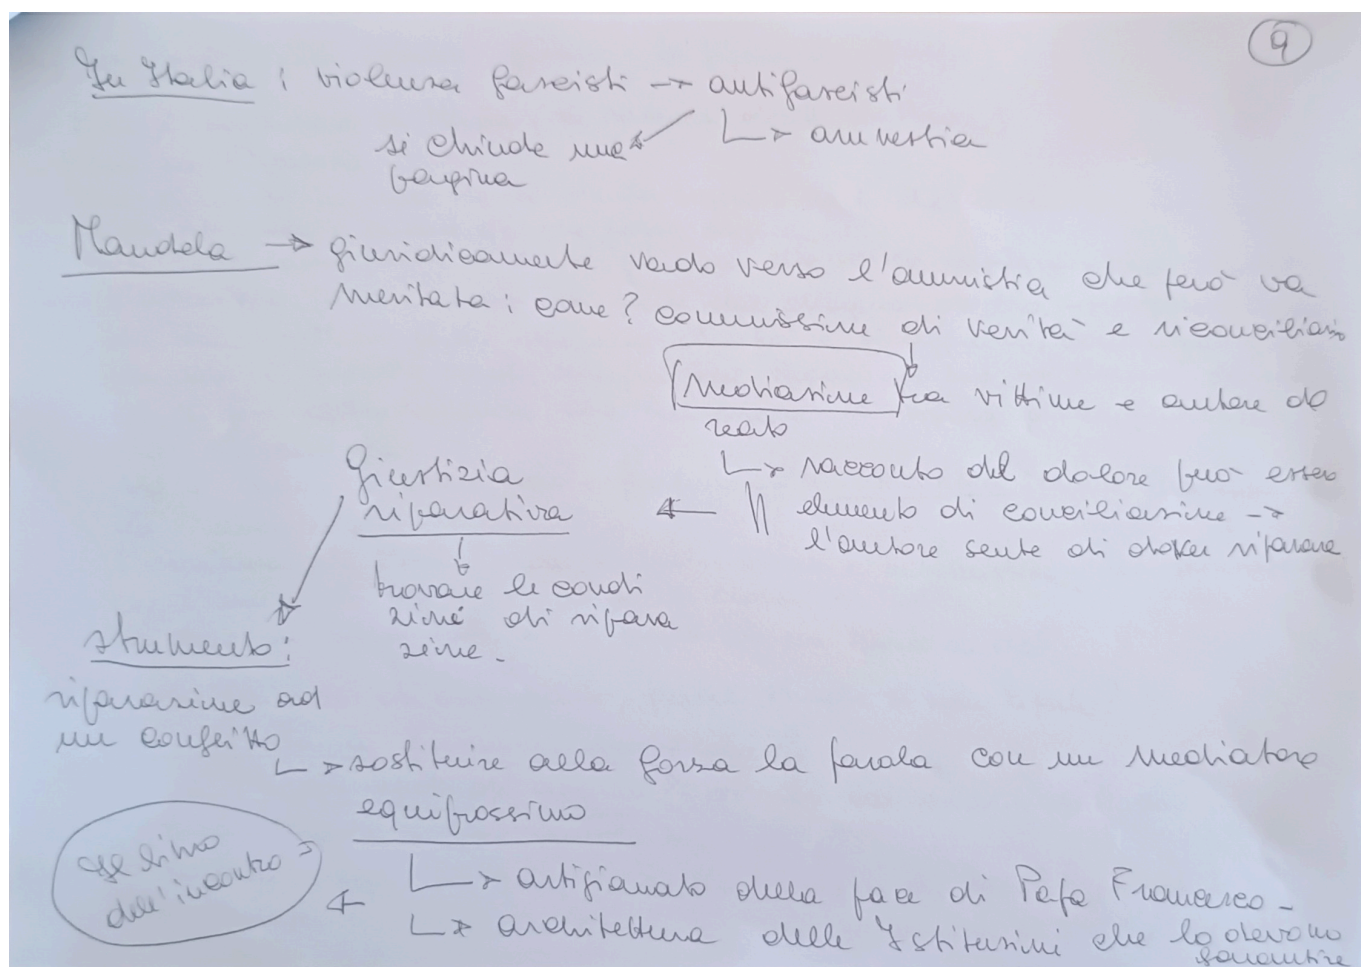 9
In Italia : violenza fascisti → antifascisti
↳ amnestia
si chiude una
pagina
Mandela → giuridicamente vado verso l'amnistia che però va
meritata : come? commissione di verità e riconciliazio
Mediazione tra vittime e autore do
reato
Giustizia
riparativa
↳ racconto del dolore può esser
← elemento di conciliazione →
l'autore sente di dover riparare
trovare le condi
zioni di ripara
zione.
strumento :
riparazione ad
un conflitto
↳ sostituire alla forza la parola con un mediatore
equiprossimo
Il libro
dell'incontro
↳ artigianato della pace di Papa Francesco -
↳ architettura delle Istituzioni che lo devono
garantire